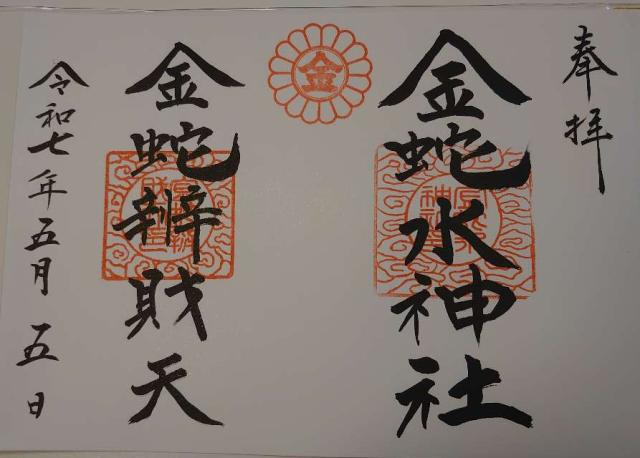 奉拝
金蛇水神社
金
金蛇辨財天
令和七年五月五日